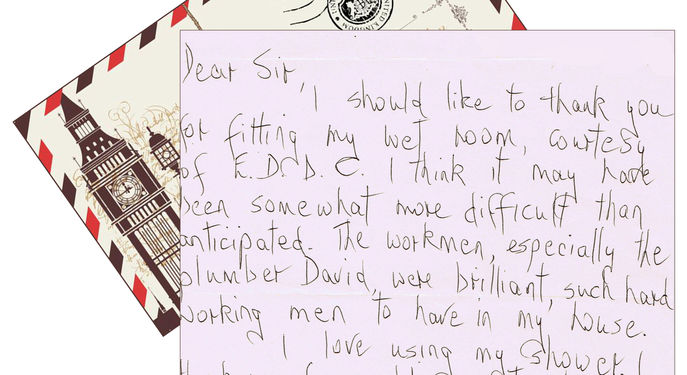 UNITED KINGDOM
Dear Sir,
I should like to thank you
for fitting my wet room, courtesy
of E.D.D.C. I think it may have
been somewhat more difficult than
anticipated. The workmen, especially the
plumber David, were brilliant, such hard
working men to have in my house.
I love using my shower!